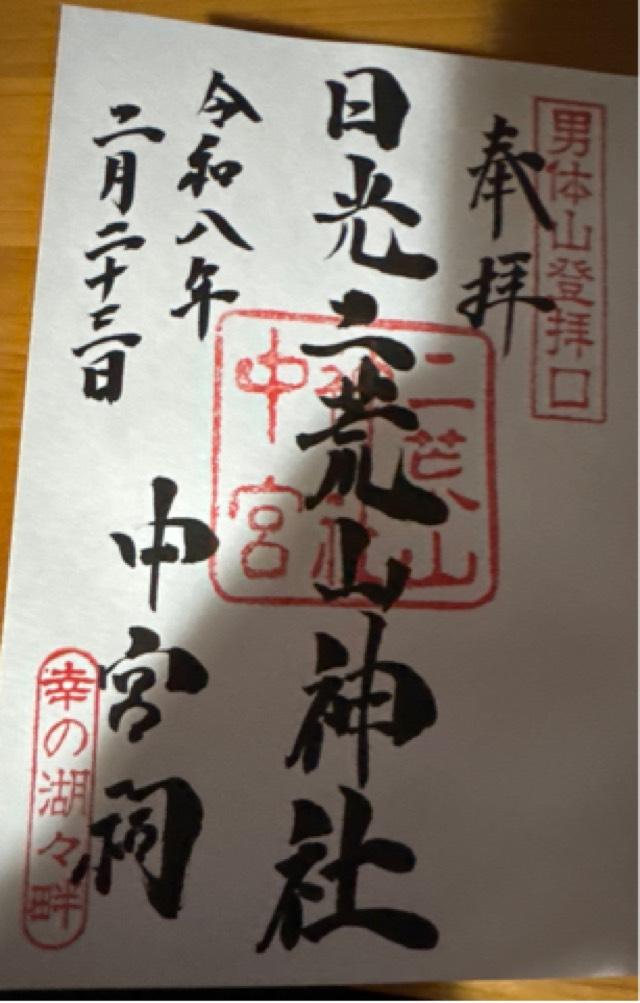 男体山登拝口
奉拝
日光二荒山神社
二荒山
神社
中宮
中宮祠
令和八年
二月二十三日
幸の湖々畔